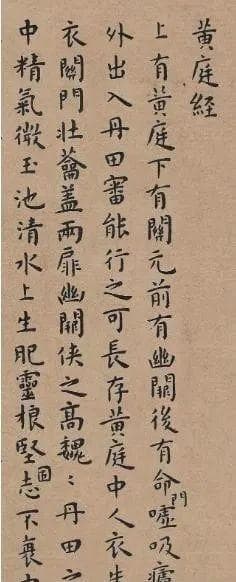 黃庭經
上有黃庭下有關元前有幽闕後有命門噓吸廬
外出入丹田審能行之可長存黃庭中人衣朱
衣關門壯蘥蓋兩扉幽闕俠之高魏〻丹田之
中精氣微玉池清水上生肥靈根堅固志不衰中